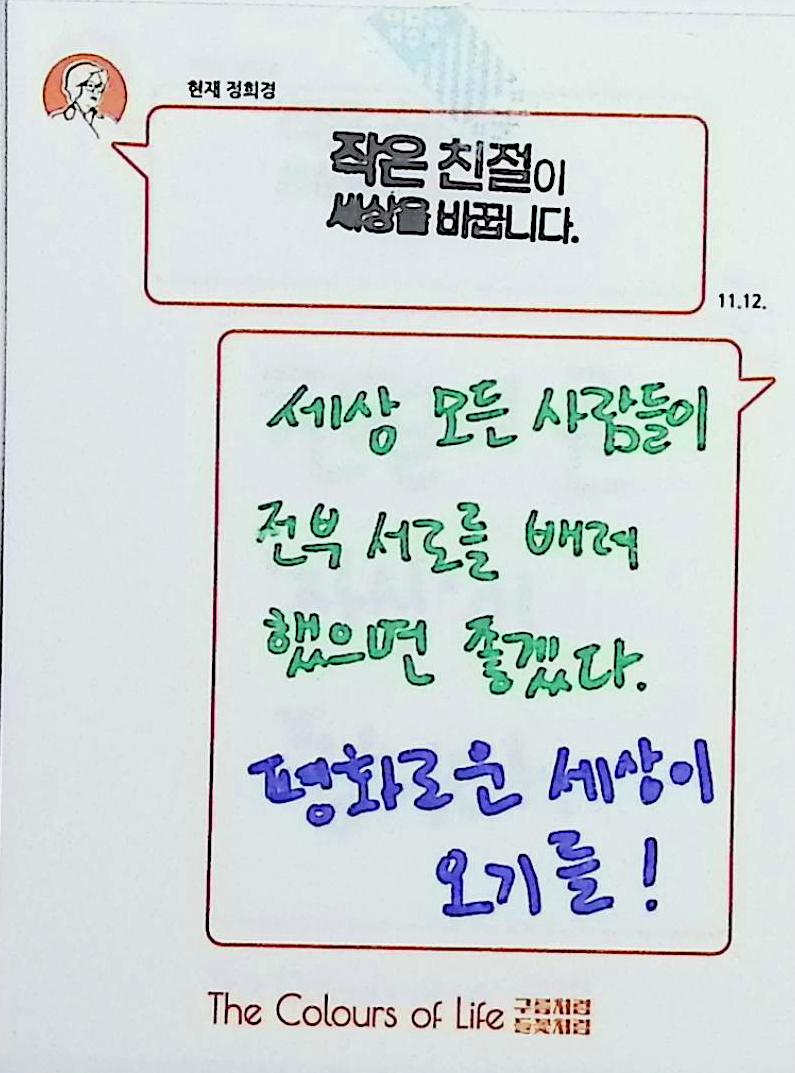 현재 정희경
작은 친절이
세상을 바꿉니다.
11.12.
세상 모든 사람들이
전부 서로를 배려
했으면 좋겠다.
평화로운 세상이
오기를!
The Colours of Life 구름처럼
들꽃처럼